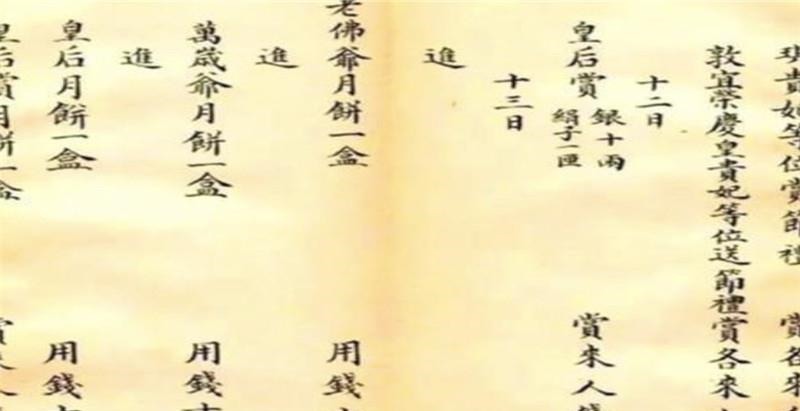 琪貴妃等位賞節禮 賞各來
敦宜榮慶皇貴妃等位送節禮賞各來
十二日
皇后賞 銀十兩 絹子一匣 賞來人錢
十三日
進
老佛爺月餅一盒 用錢
進
萬歲爺月餅一盒 用錢十
進
皇后月餅一盒 用錢
皇后賞月餅一盒 賞來人